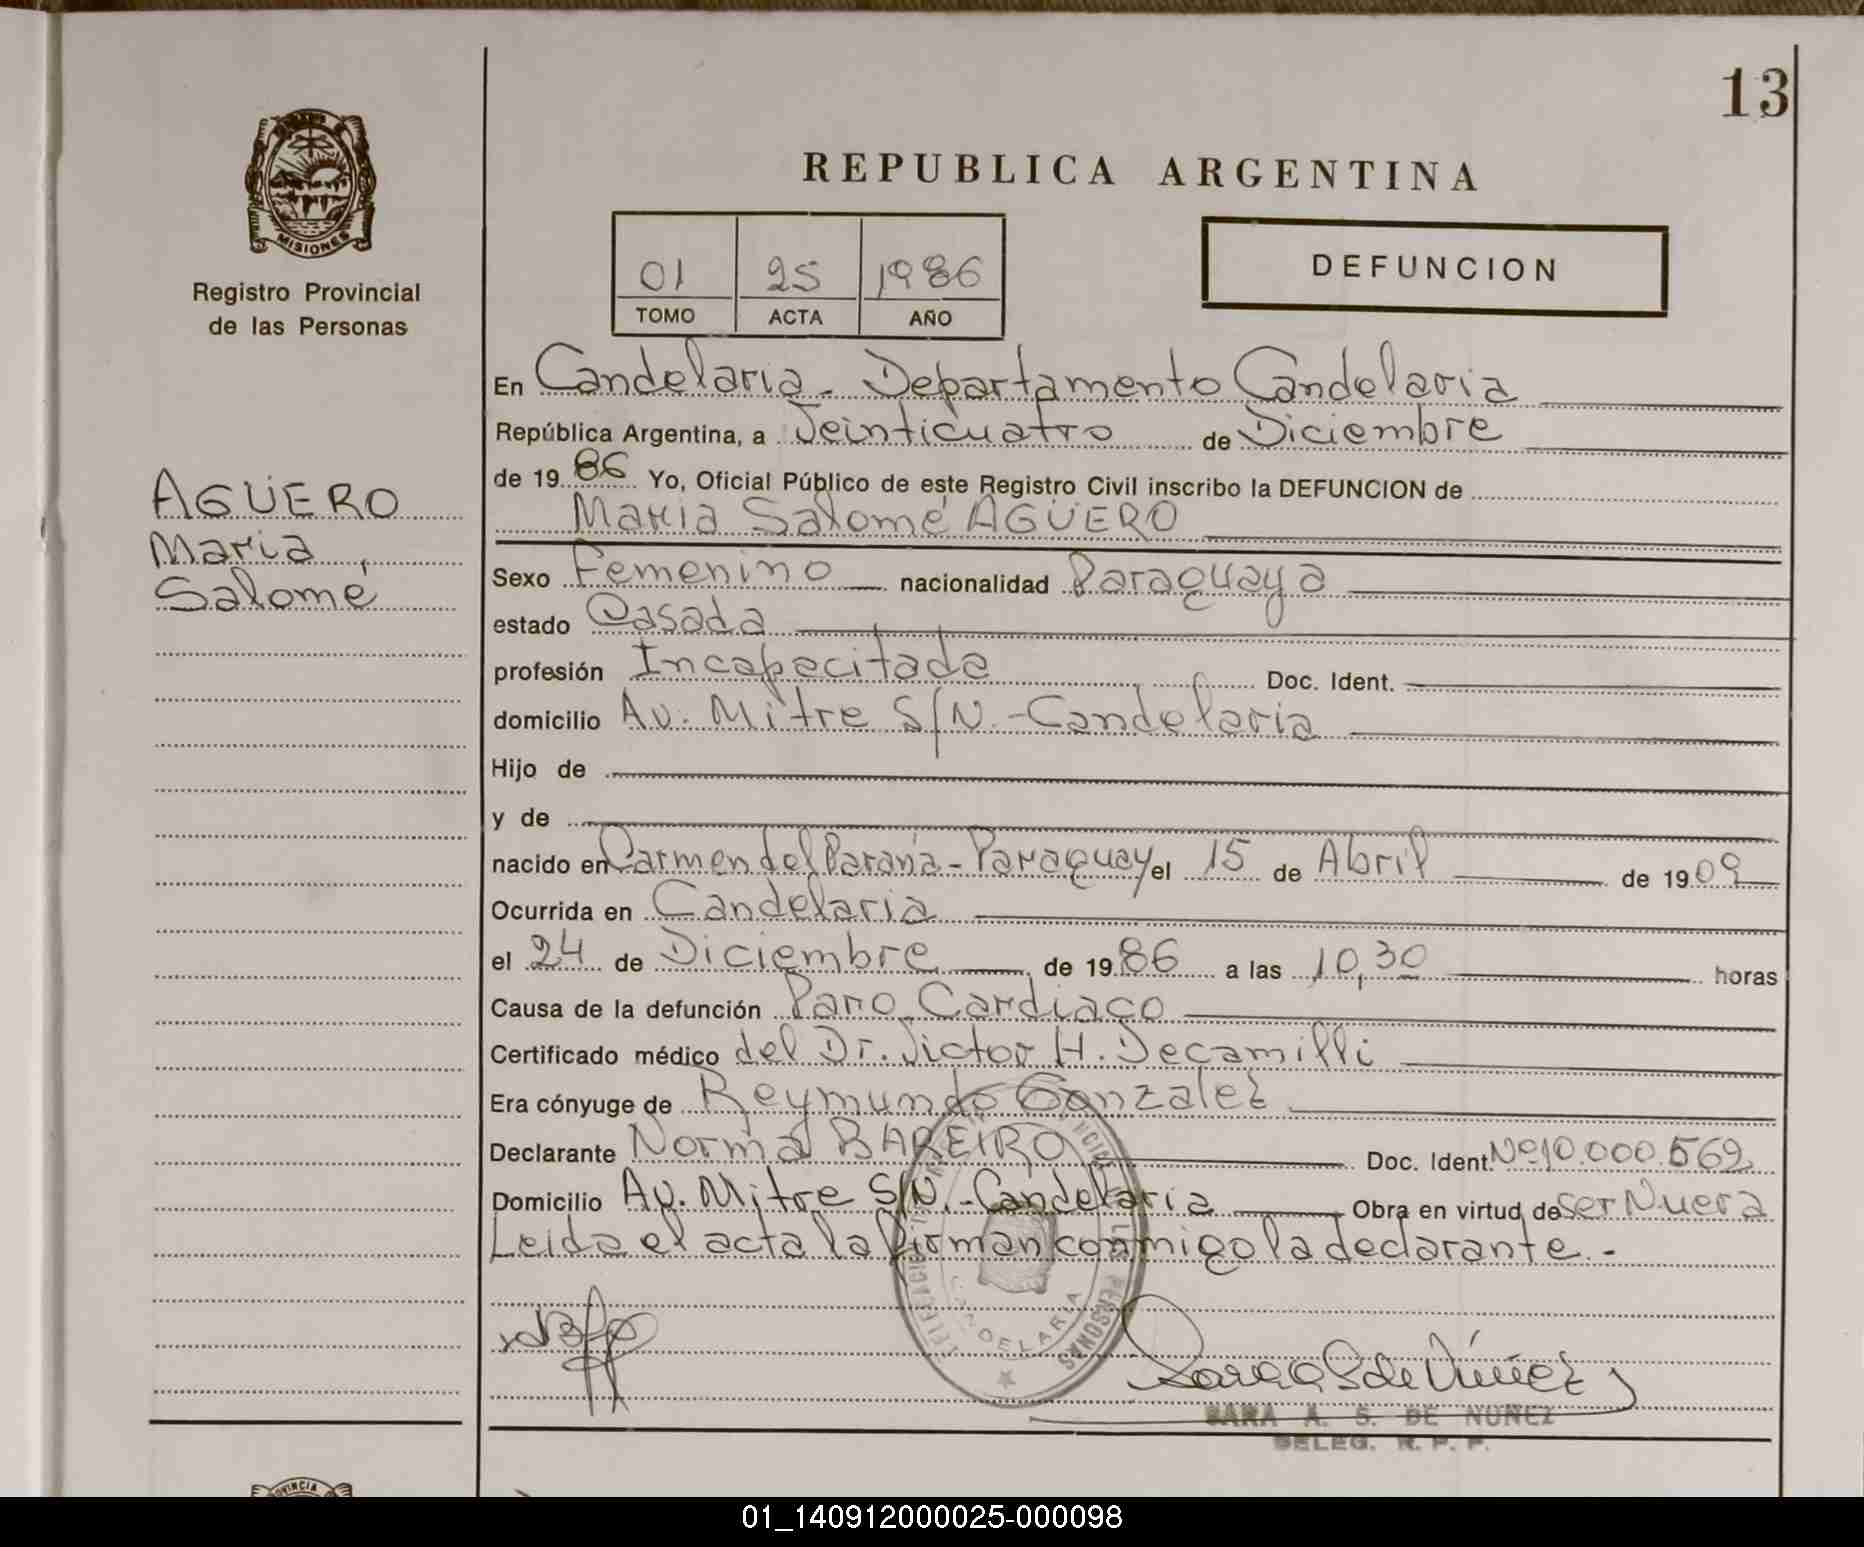 13
REPUBLICA ARGENTINA
MISIONES
Registro Provincial
de las Personas
01 25 1986
TOMO ACTA AÑO
DEFUNCION
AGÜERO
Maria
Salomé
En Candelaria - Departamento Candelaria
República Argentina, a Veinticuatro de Diciembre
de 1986 Yo, Oficial Público de este Registro Civil inscribo la DEFUNCION de
Maria Salomé AGÜERO
Sexo Femenino nacionalidad Paraguaya
estado Casada
profesión Incapacitada Doc. Ident.
domicilio Av. Mitre S/N.-Candelaria
Hijo de
y de
nacido en Carmen del Paraná - Paraguay el 15 de Abril de 1909
Ocurrida en Candelaria
el 24 de Diciembre de 1986 a las 10,30 horas
Causa de la defunción Paro Cardiaco
Certificado médico del Dr. Victor H. Decamilli
Era cónyuge de Reymundo Gonzalez
Declarante Norma BAREIRO Doc. Ident. Nº10.000.569
Domicilio Av. Mitre S/N.-Candelaria Obra en virtud de ser Nuera
Leida el acta la firman conmigo la declarante.-
CANDELARIA
PERSONAS
SARA A. S. DE NUÑEZ
DELEG. R. P. P.
PROVINCIA
01_140912000025-000098